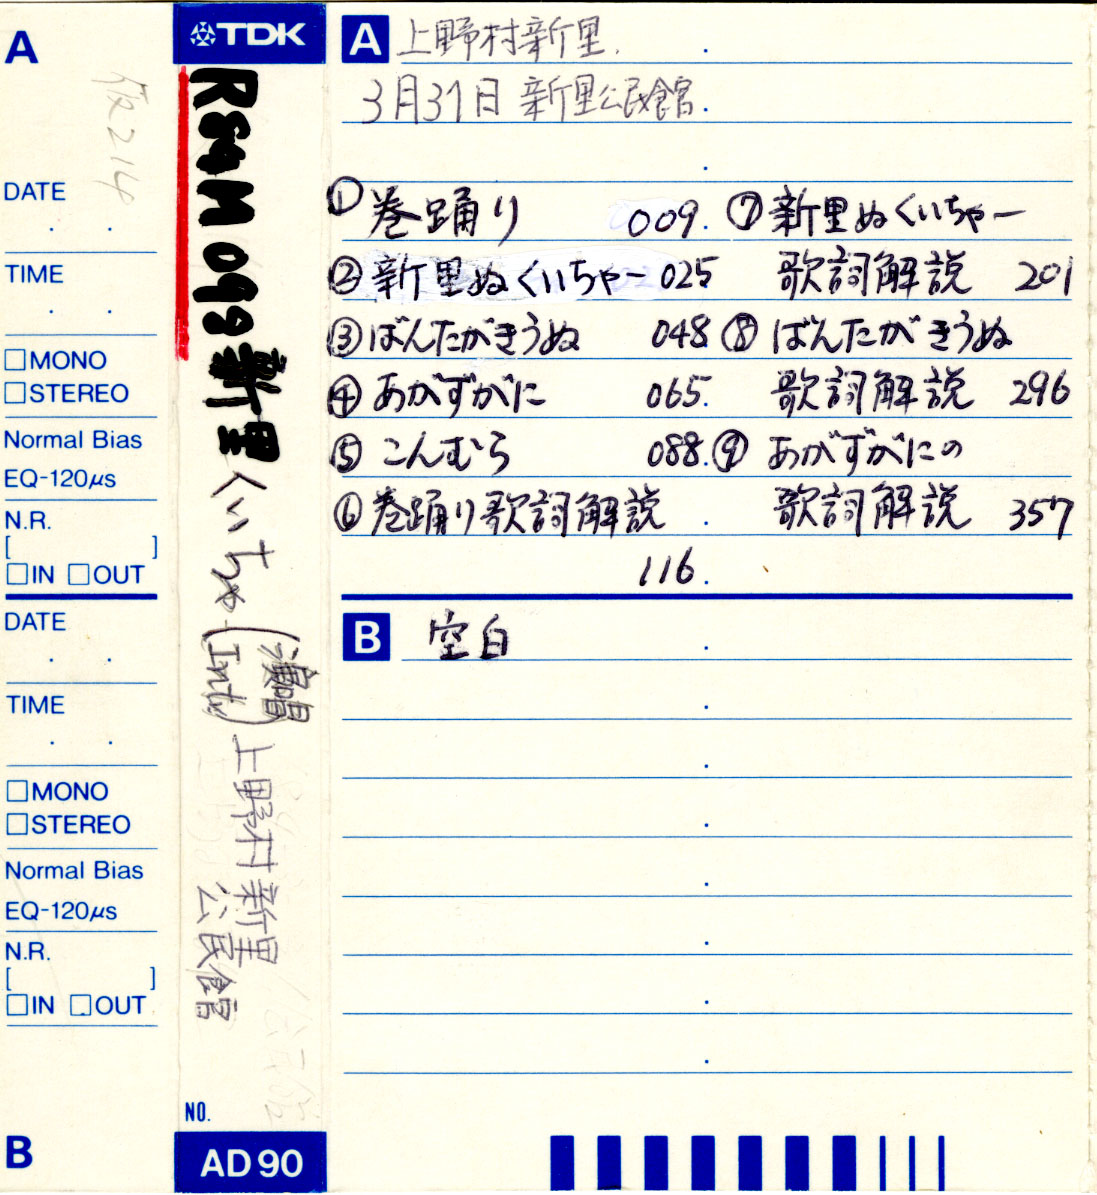 A
仮214
DATE
TIME
□MONO
□STEREO
Normal Bias
EQ-120μs
N.R.
[ ]
□IN □OUT
DATE
TIME
□MONO
□STEREO
Normal Bias
EQ-120μs
N.R.
[ ]
□IN □OUT
B
TDK
099 新里くいちゃー(演唱
Intv)
上野村新里
公民館
NO.
AD90
A 上野村新里.
3月31日 新里公民館.
① 巻踊り 009. ⑦ 新里ぬくいちゃー
② 新里ぬくいちゃー 025 歌詞解説 201
③ ばんたがきうぬ 048 ⑧ ばんたがきうぬ
④ あがずがに 065. 歌詞解説 296
⑤ こんむら 088. ⑨ あがずがにの
⑥ 巻踊り歌詞解説 歌詞解説 357
116.
B 空白